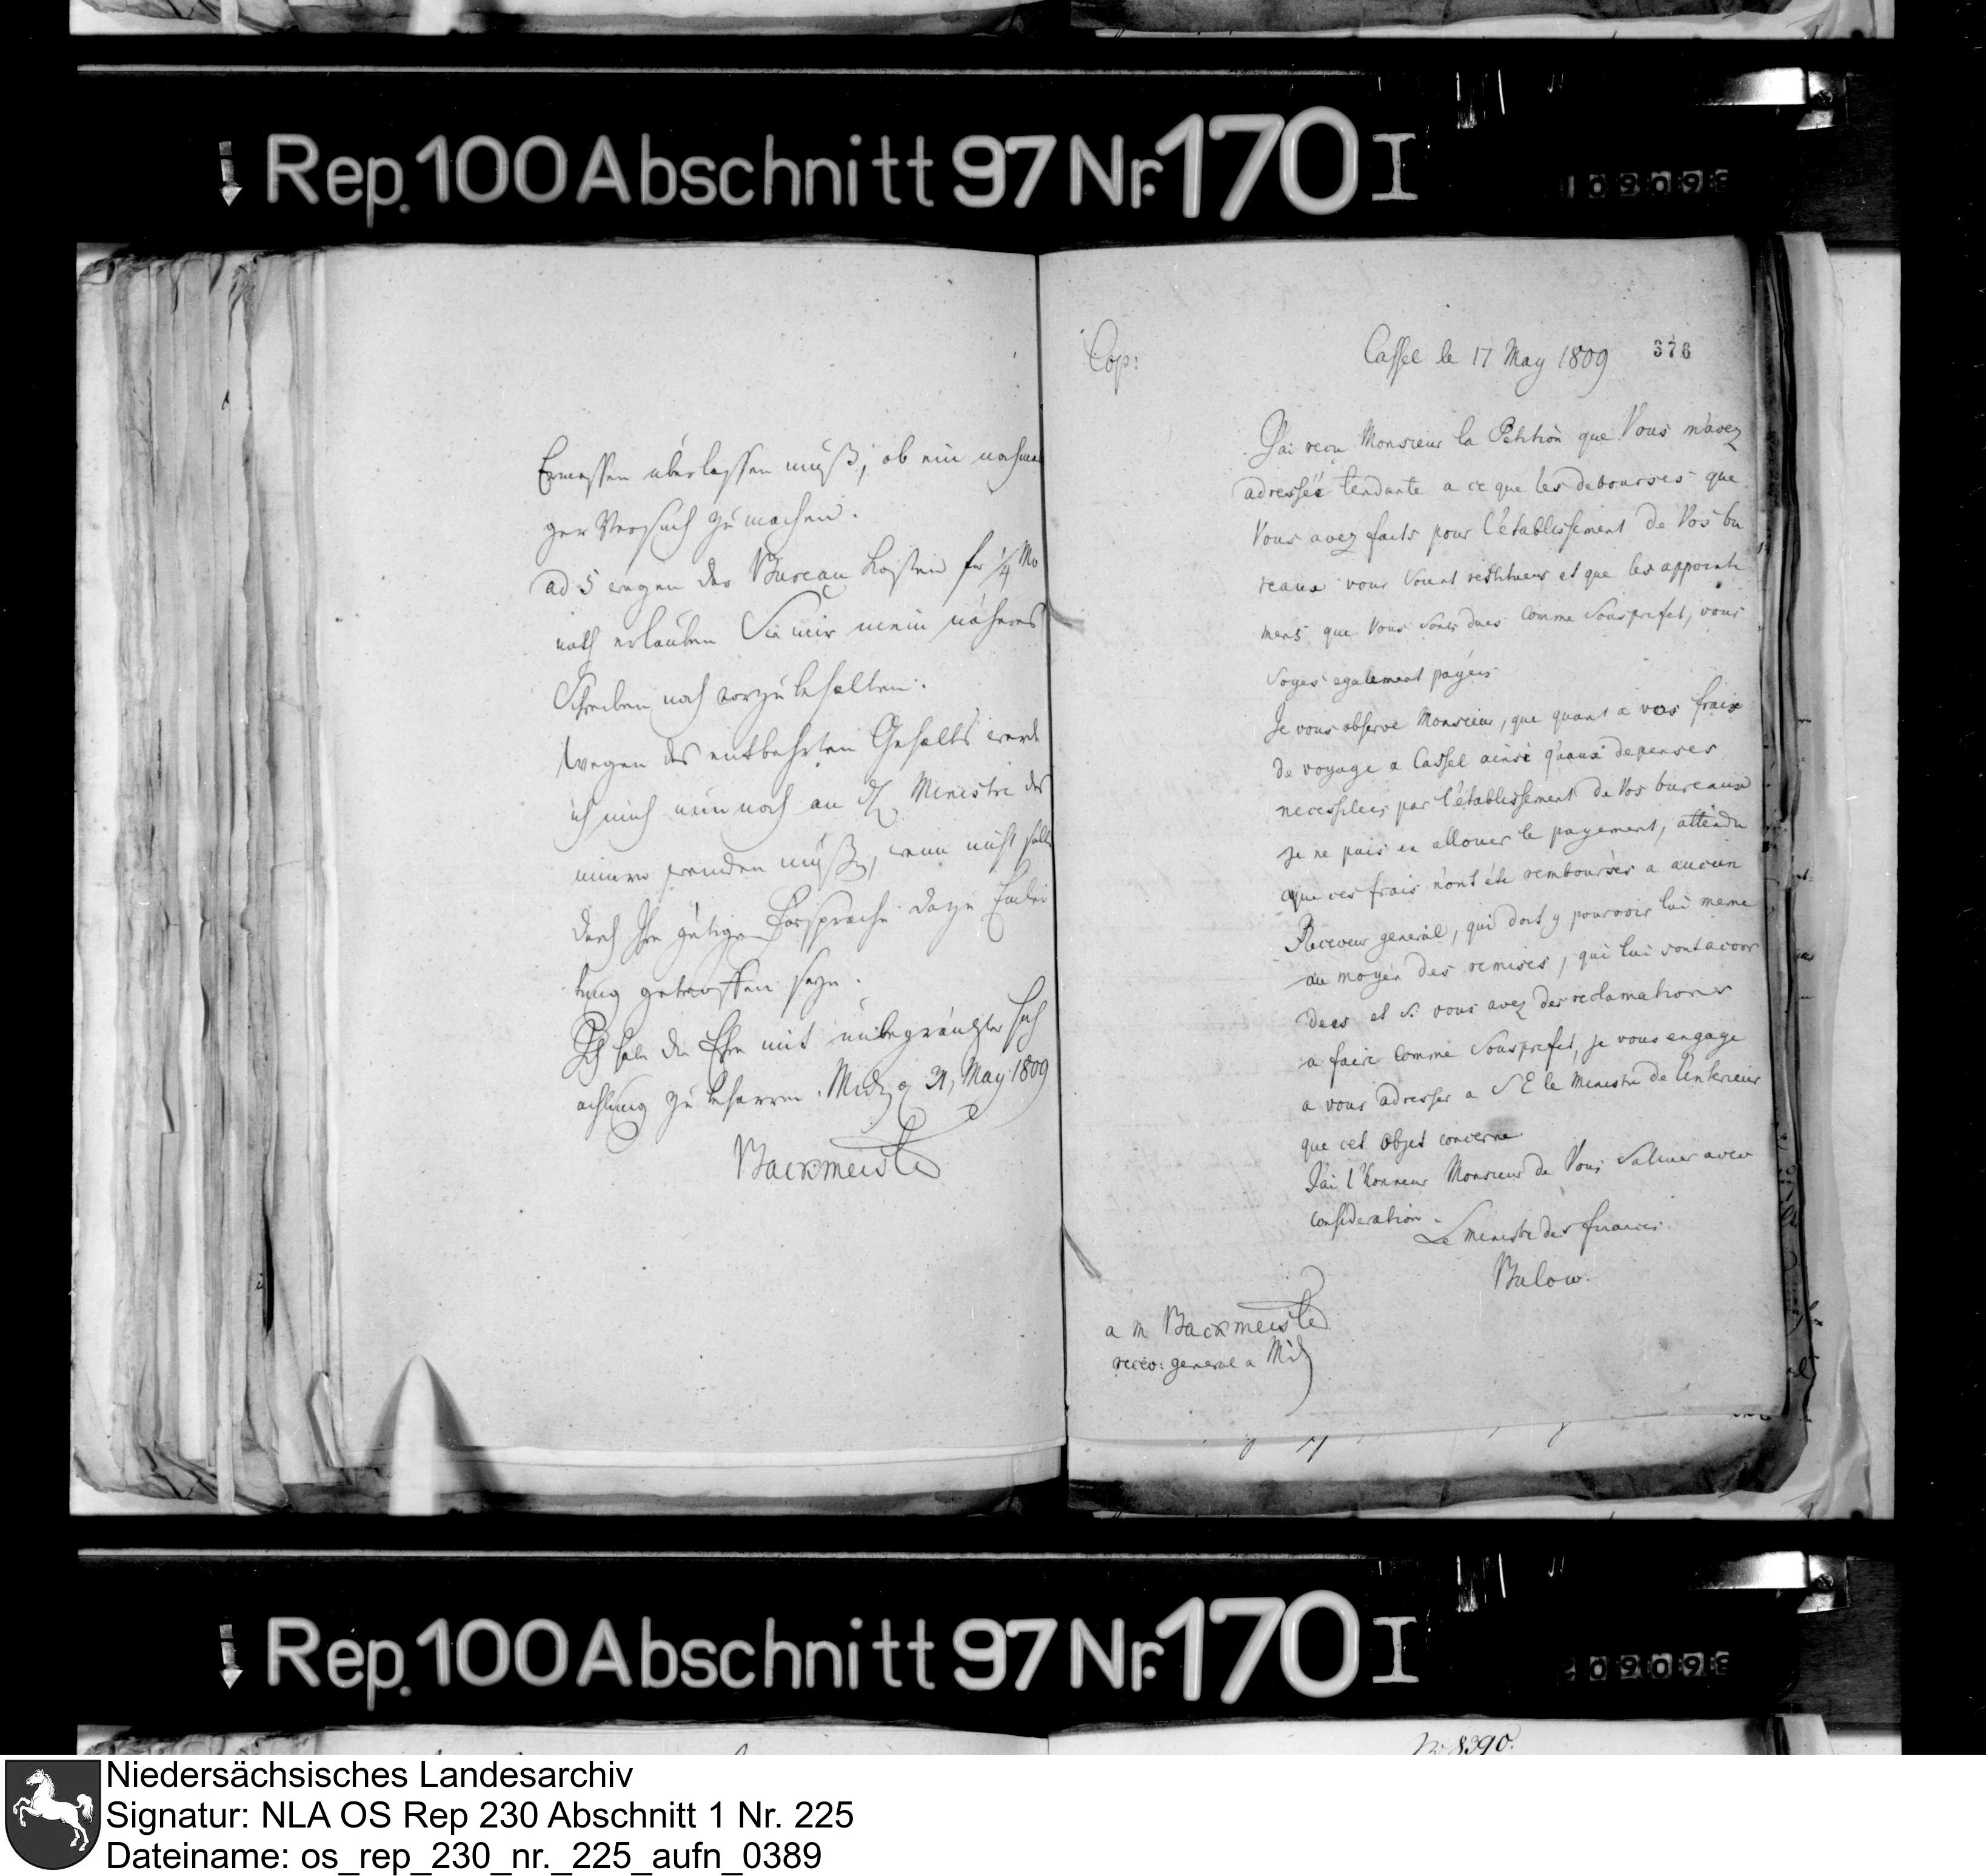 Rep. 100 Abschnitt 97 Nr. 170 I
109093
Ermessen überlassen muß, ob ein nochmali
ger Versuch zu machen.
ad 5 wegen der Bureau Kosten für 1/4 Mo
nath erlauben Sie mir mein näheres
Schreiben noch vorzubehalten.
Wegen des entbehrten Gehalts werde
ich mich nun noch an d Ministre des
innern wenden müssen, wenn nicht sollte
durch Ihre gütige Fürsprache dazu Einlei
tung getroffen seyn.
Ich habe die Ehre mit unbegränzter Hoch
achtung zu beharren. 31 May 1809
Backmeister
Cop:
Cassel le 17 May 1809
376
J'ai reçu Monsieur la Petition que Vous m'avez
adresseé tendante a ce que les debourses que
Vous avez faits pour l'établissement de Vos bu
reaux vous soient restitues et que les appointe
ments que Vous sont dues comme Sousprefet, vous
soyes egalement payées
Je vous observe Monsieur, que quant a vos fraix
de voyage a Cassel ainsi qu'aux depenses
necessitees par l'établissement de Vos bureaux
je ne puis en allouer le payement, attendu
que ces frais n'ont été remboursés a aucun
Receveur general, qui doit y pourvoir lui meme
au moyen des remises, qui lui sont accor
dees et si vous avez des reclamations
a faire comme Sousprefet, je vous engage
a vous adresser a S E le Ministre de l'interieur
que cet objet concerne
J'ai l'honneur Monsieur de Vous Saluer avec
consideration.
Le ministre des finances
Bulow.
a M Backmeister
recev: general a
Rep. 100 Abschnitt 97 Nr. 170 I
209093
8390.
Niedersächsisches Landesarchiv
Signatur: NLA OS Rep 230 Abschnitt 1 Nr. 225
Dateiname: os_rep_230_nr._225_aufn_0389